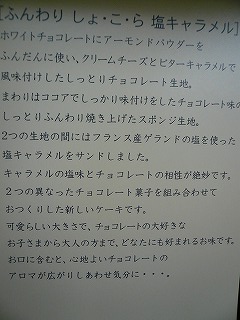 [ふんわり しょ・こ・ら 塩キャラメル]
ホワイトチョコレートにアーモンドパウダーを
ふんだんに使い、クリームチーズとビターキャラメルで
風味付けしたしっとりチョコレート生地。
まわりはココアでしっかり味付けをしたチョコレート味の
しっとりふんわり焼き上げたスポンジ生地。
2つの生地の間にはフランス産ゲランドの塩を使った
塩キャラメルをサンドしました。
キャラメルの塩味とチョコレートの相性が絶妙です。
２つの異なったチョコレート菓子を組み合わせて
おつくりした新しいケーキです。
可愛らしい大きさで、チョコレートの大好きな
お子さまから大人の方まで、どなたにも好まれるお味です。
お口に含むと、心地よいチョコレートの
アロマが広がりしあわせ気分に・・・。